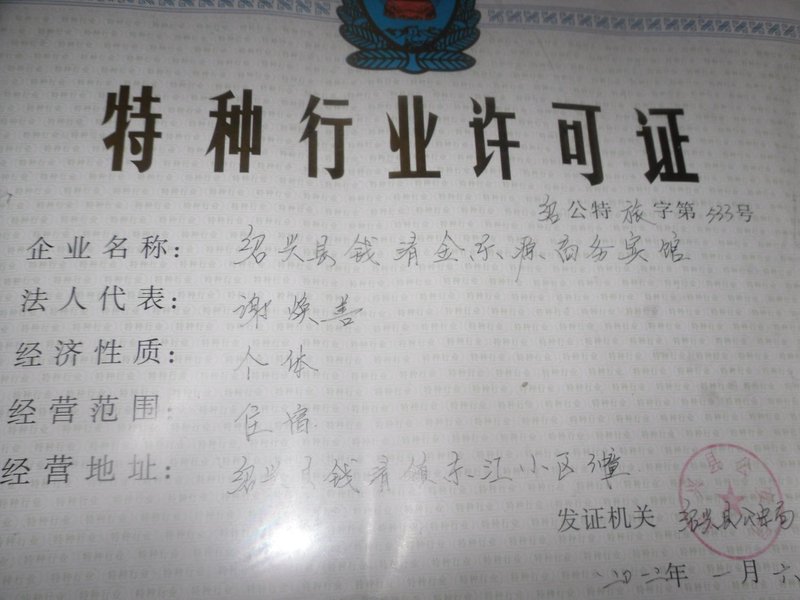 特种行业许可证
绍公特旅字第533号
企业名称: 绍兴县钱清金乐源商务宾馆
法人代表: 谢焕善
经济性质: 个体
经营范围: 住宿
经营地址: 绍兴县钱清镇东江小区3幢
发证机关 绍兴县公安局
年一月六